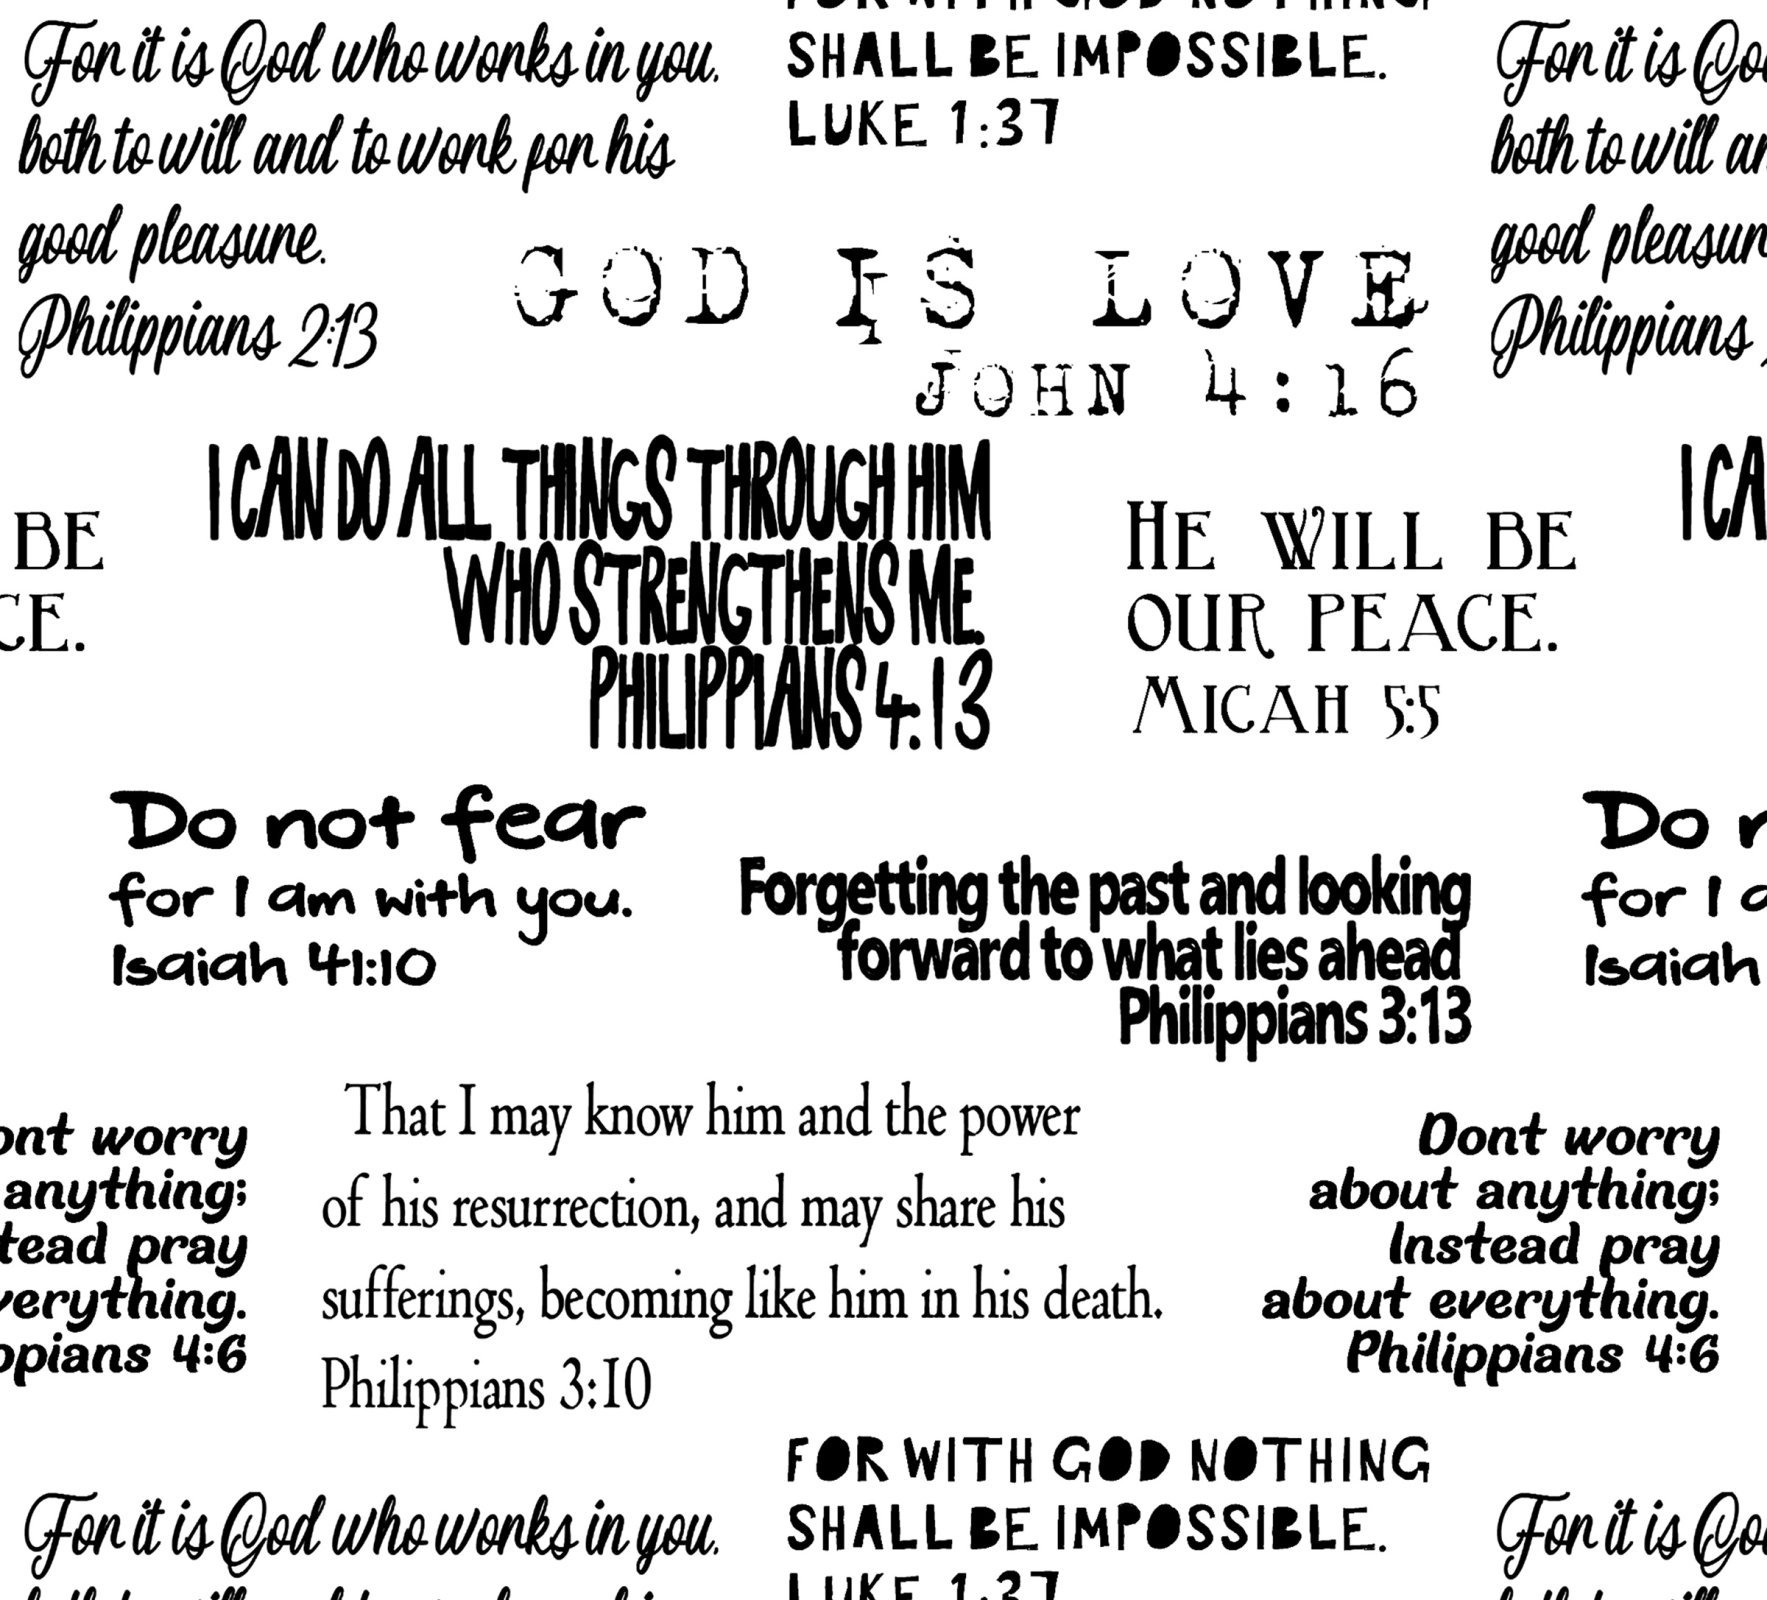 For it is God who works in you.
both to will and to work for his
good pleasure.
Philippians 2:13
FOR WITH GOD NOTHING
SHALL BE IMPOSSIBLE.
LUKE 1:37
For it is
both to will
good
Philippians
GOD IS LOVE
JOHN 4:16
BE
I CAN DO ALL THINGS THROUGH HIM
WHO STRENGTHENS ME.
PHILIPPIANS 4:13
HE WILL BE
OUR PEACE.
MICAH 5:5
I
Do not fear
for I am with you.
Isaiah 41:10
Forgetting the past and looking
forward to what lies ahead
Philippians 3:13
Do
for I
Isaiah
worry
anything;
pray
4:6
That I may know him and the power
of his resurrection, and may share his
sufferings, becoming like him in his death.
Philippians 3:10
Dont worry
about anything;
Instead pray
about everything.
Philippians 4:6
For it is God who works in you.
FOR WITH GOD NOTHING
SHALL BE IMPOSSIBLE.
LUKE 1:37
For it is